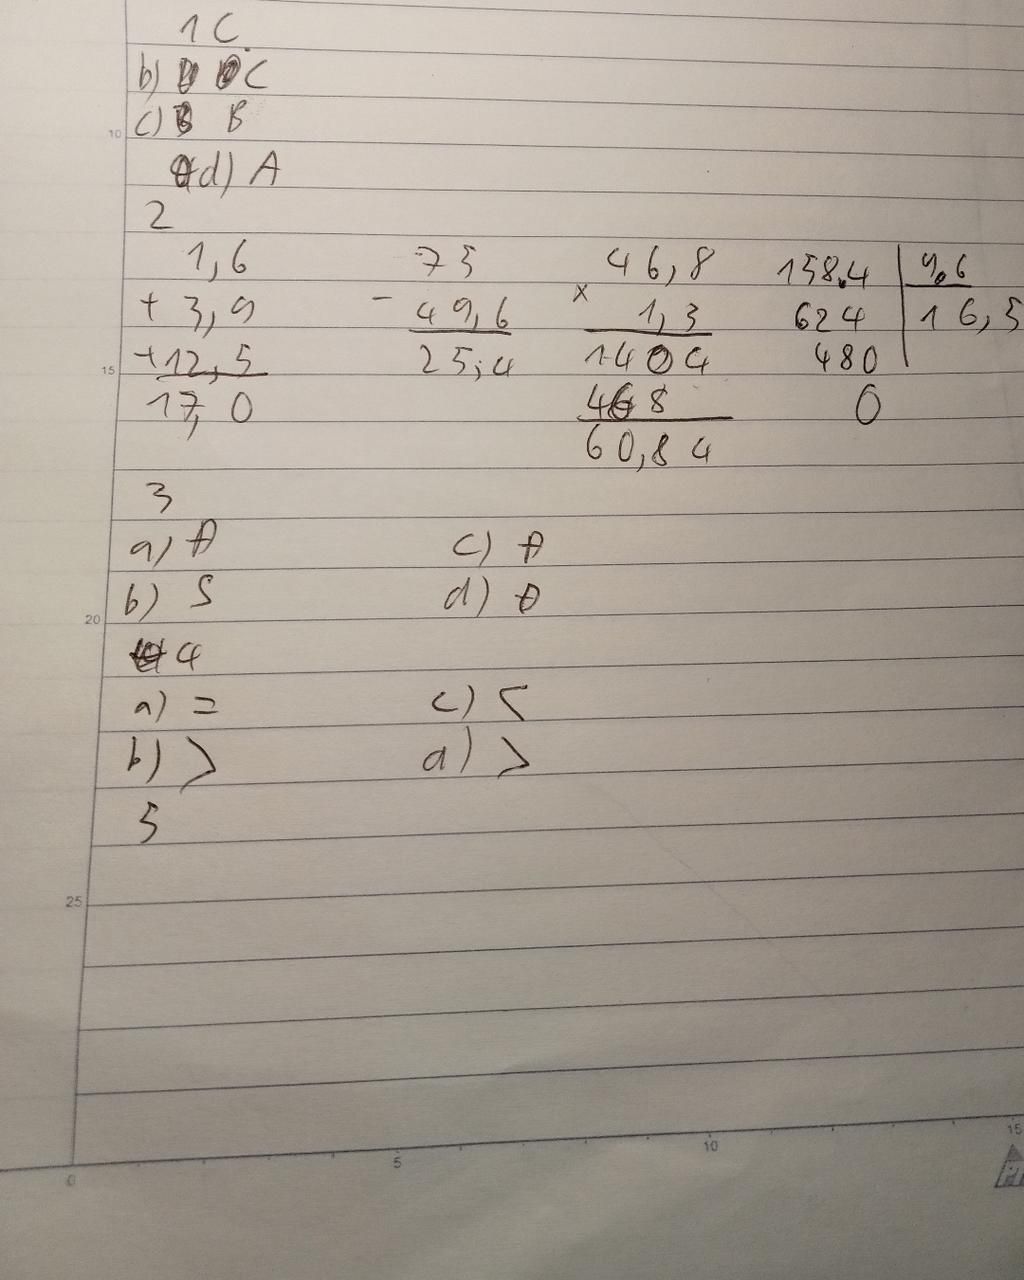 1 C
b) C
c) B
d) A
2
1,6 75 46,8 158,4 9,6
+ 3,9 - 49,6 x 1,3 624 16,5
+12,5 25,4 1404 480
17,0 468 0
60,84
3
a) A c) A
b) S d)
4
a) = c) <
b) > d) >
5
10
15
20
25
0 5 10 15